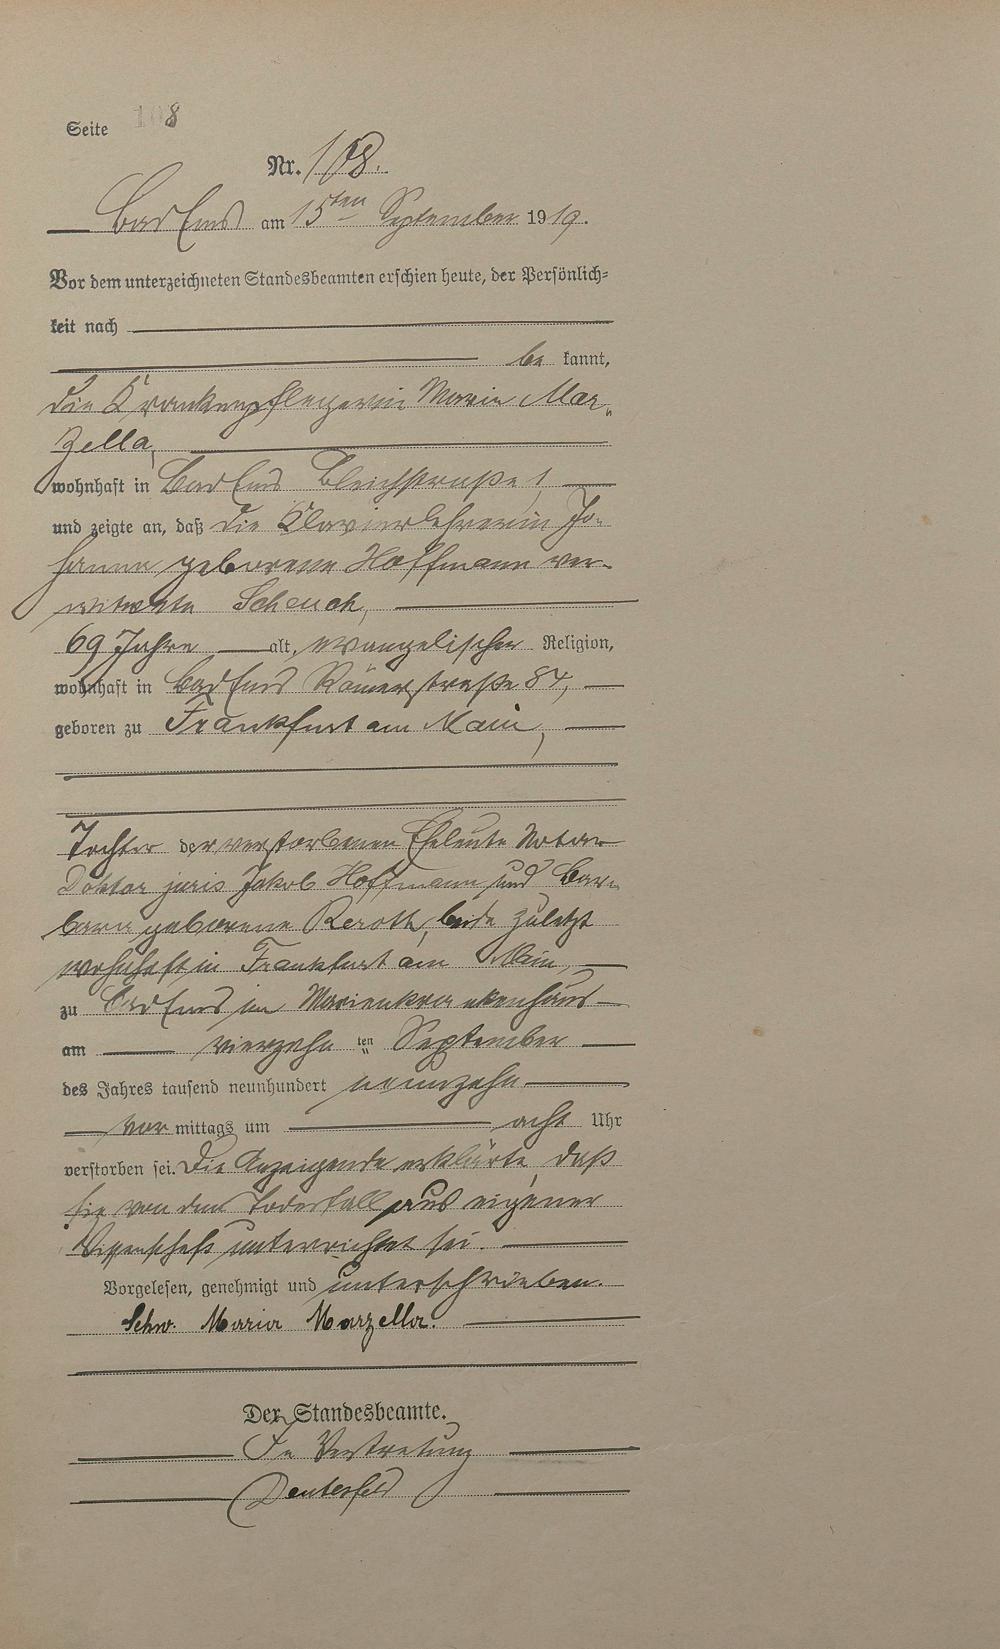 Seite 108
Nr. 108.
Bad Ems am 15ten September 1919.
Vor dem unterzeichneten Standesbeamten erschien heute, der Persönlich-
keit nach
be kannt,
die Krankenpflegerin Maria Mar-
zella,
wohnhaft in Bad Ems Bleichstraße 1,
und zeigte an, daß die Klavierlehrerin Jo-
hanna geborene Hoffmann ver-
witwete Schauch,
69 Jahre alt, evangelischer Religion,
wohnhaft in Bad Ems Römerstraße 84,
geboren zu Frankfurt am Main,
Tochter der verstorbenen Eheleute Notar
Doktor juris Jakob Hoffmann und Bar-
bara geborene beide zuletzt
wohnhaft in Frankfurt am Main,
zu Bad Ems im Marienkrankenhaus
am vierzehn ten September
des Jahres tausend neunhundert neunzehn
vor mittags um acht Uhr
verstorben sei. Die Anzeigende erklärte, daß
sie von dem Todesfall aus eigener
Wissenschaft unterrichtet sei.
Vorgelesen, genehmigt und unterschrieben.
Schw. Maria Marzella.
Der Standesbeamte.
In Vertretung